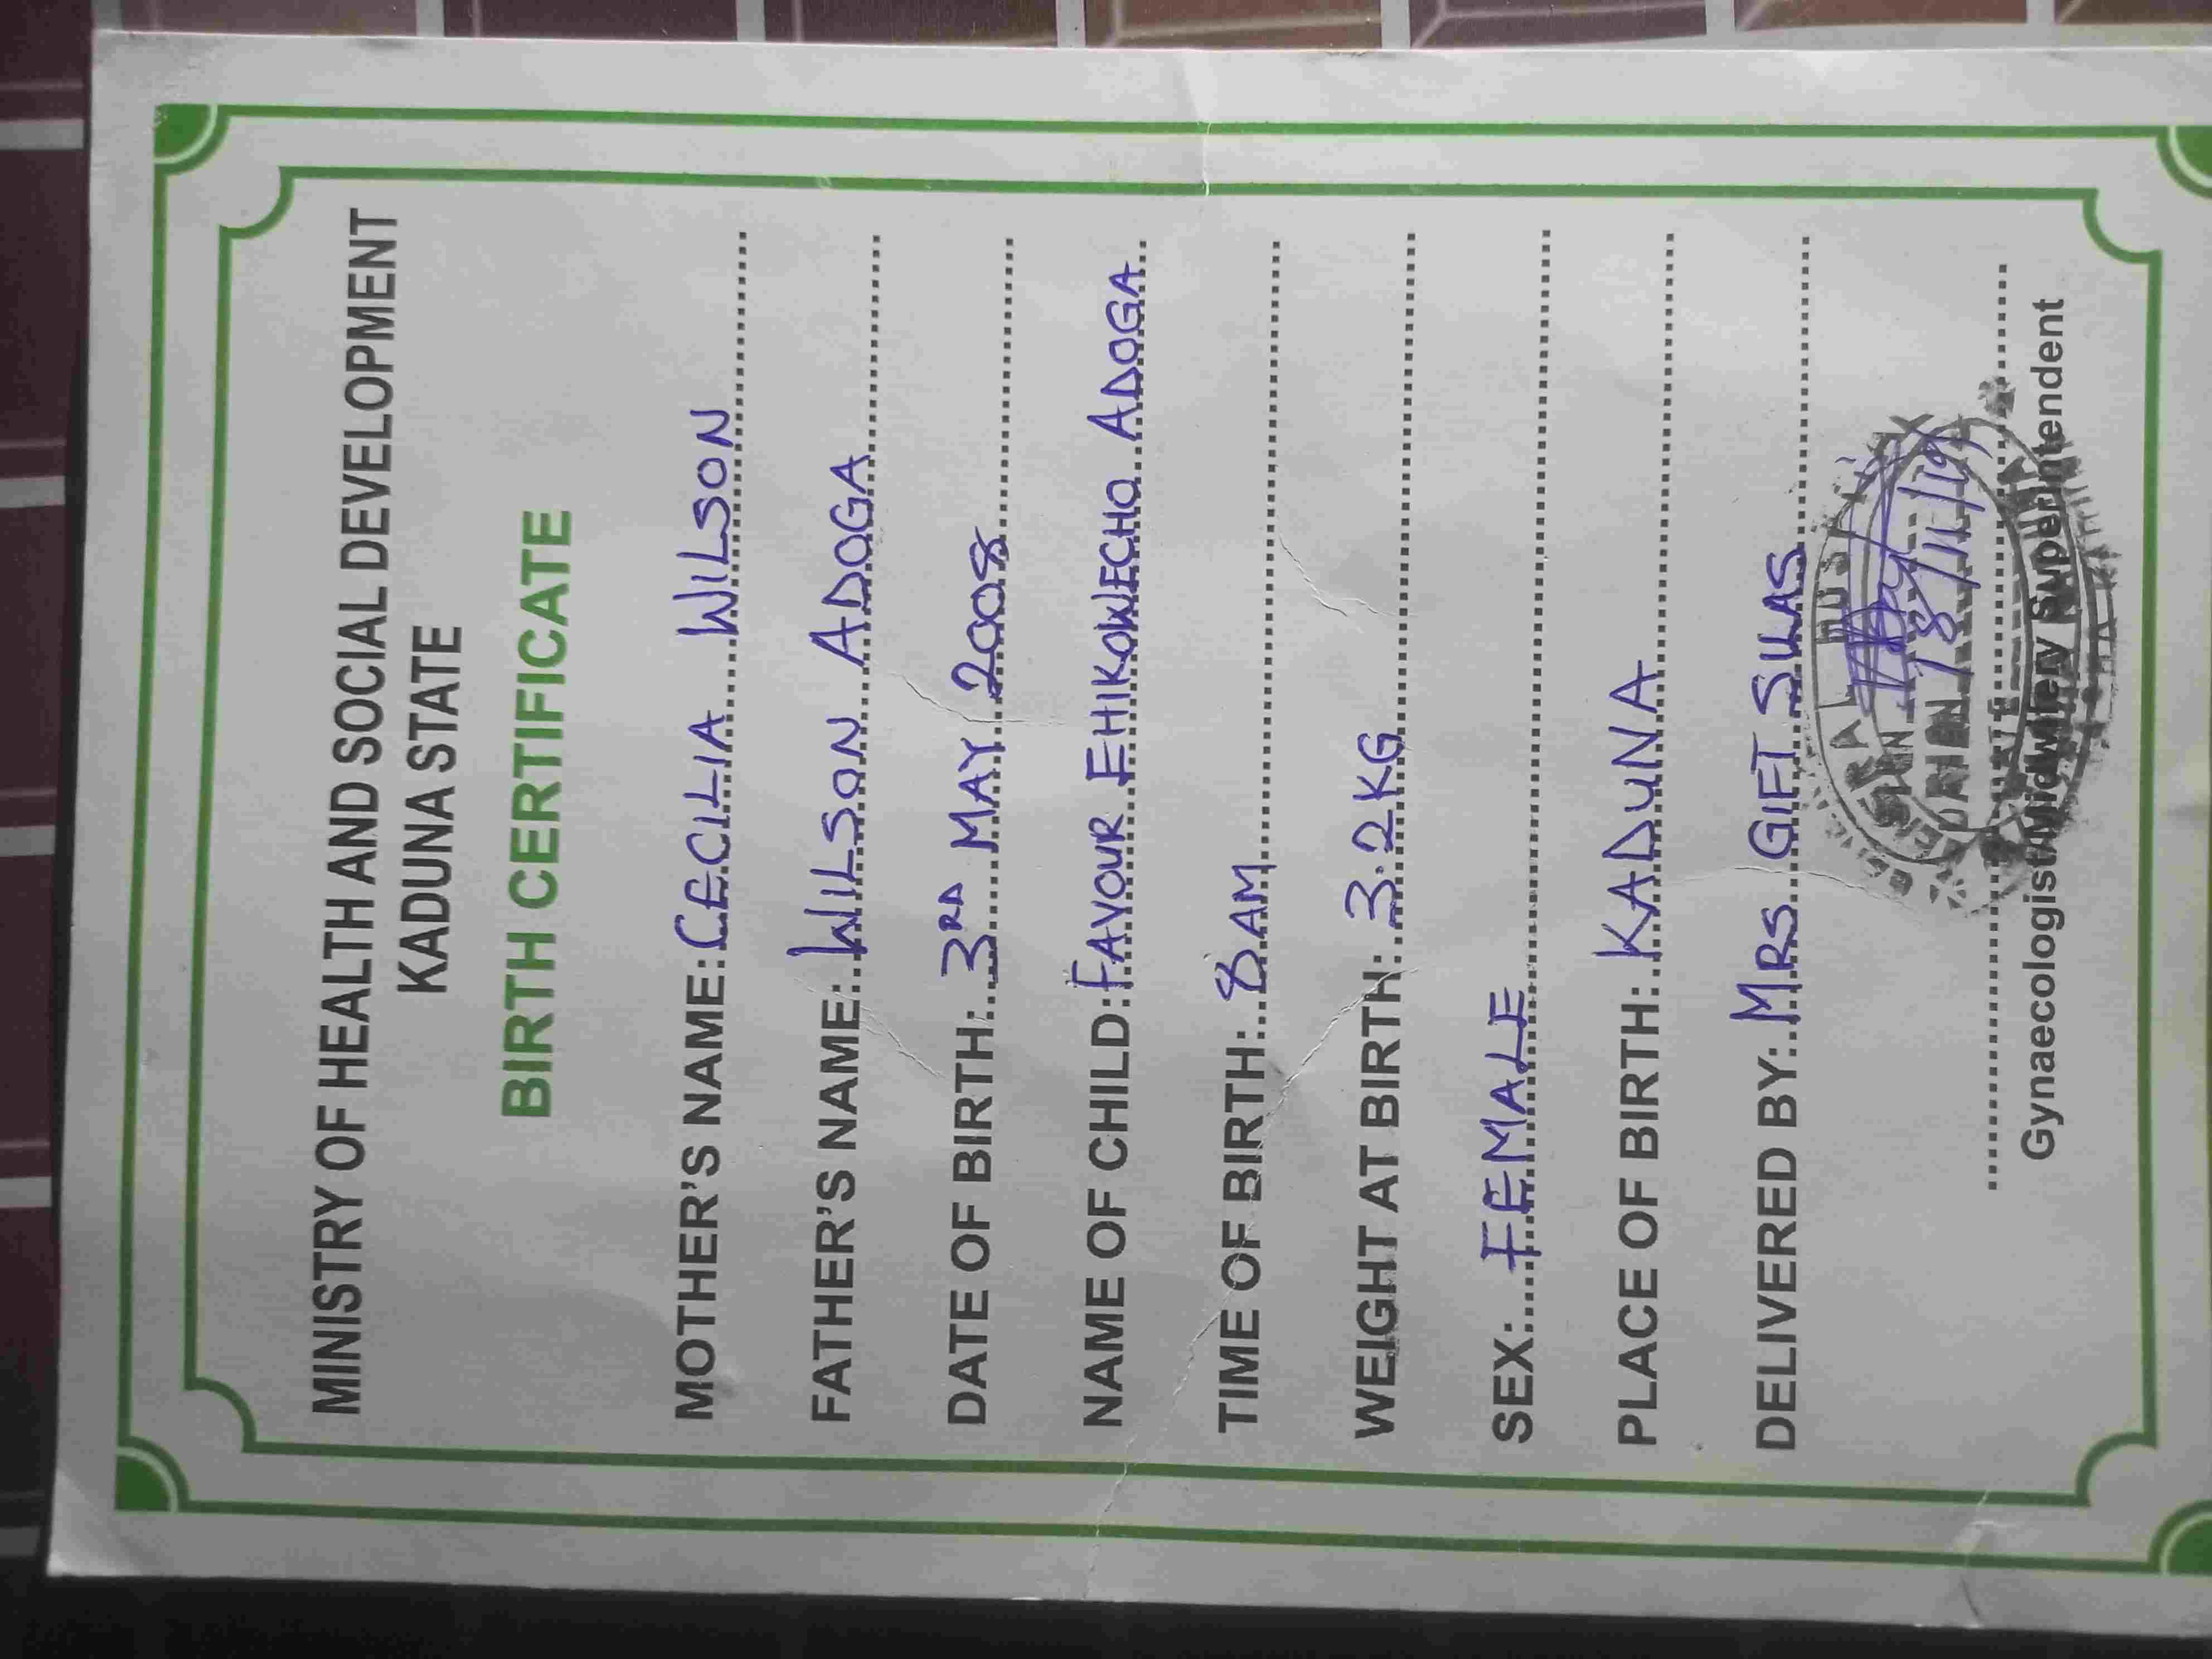 MINISTRY OF HEALTH AND SOCIAL DEVELOPMENT
KADUNA STATE
BIRTH CERTIFICATE
MOTHER'S NAME: CECILIA WILSON
FATHER'S NAME: WILSON ADOGA
DATE OF BIRTH: 3RD MAY 2008
NAME OF CHILD: FAVOUR EHIKOWECHO ADOGA
TIME OF BIRTH: 8 AM
WEIGHT AT BIRTH: 3.2KG
SEX: FEMALE
PLACE OF BIRTH: KADUNA
DELIVERED BY: MRS GIFT SULAS
18/11/19
Gynaecologist/Midwifery Superintendent